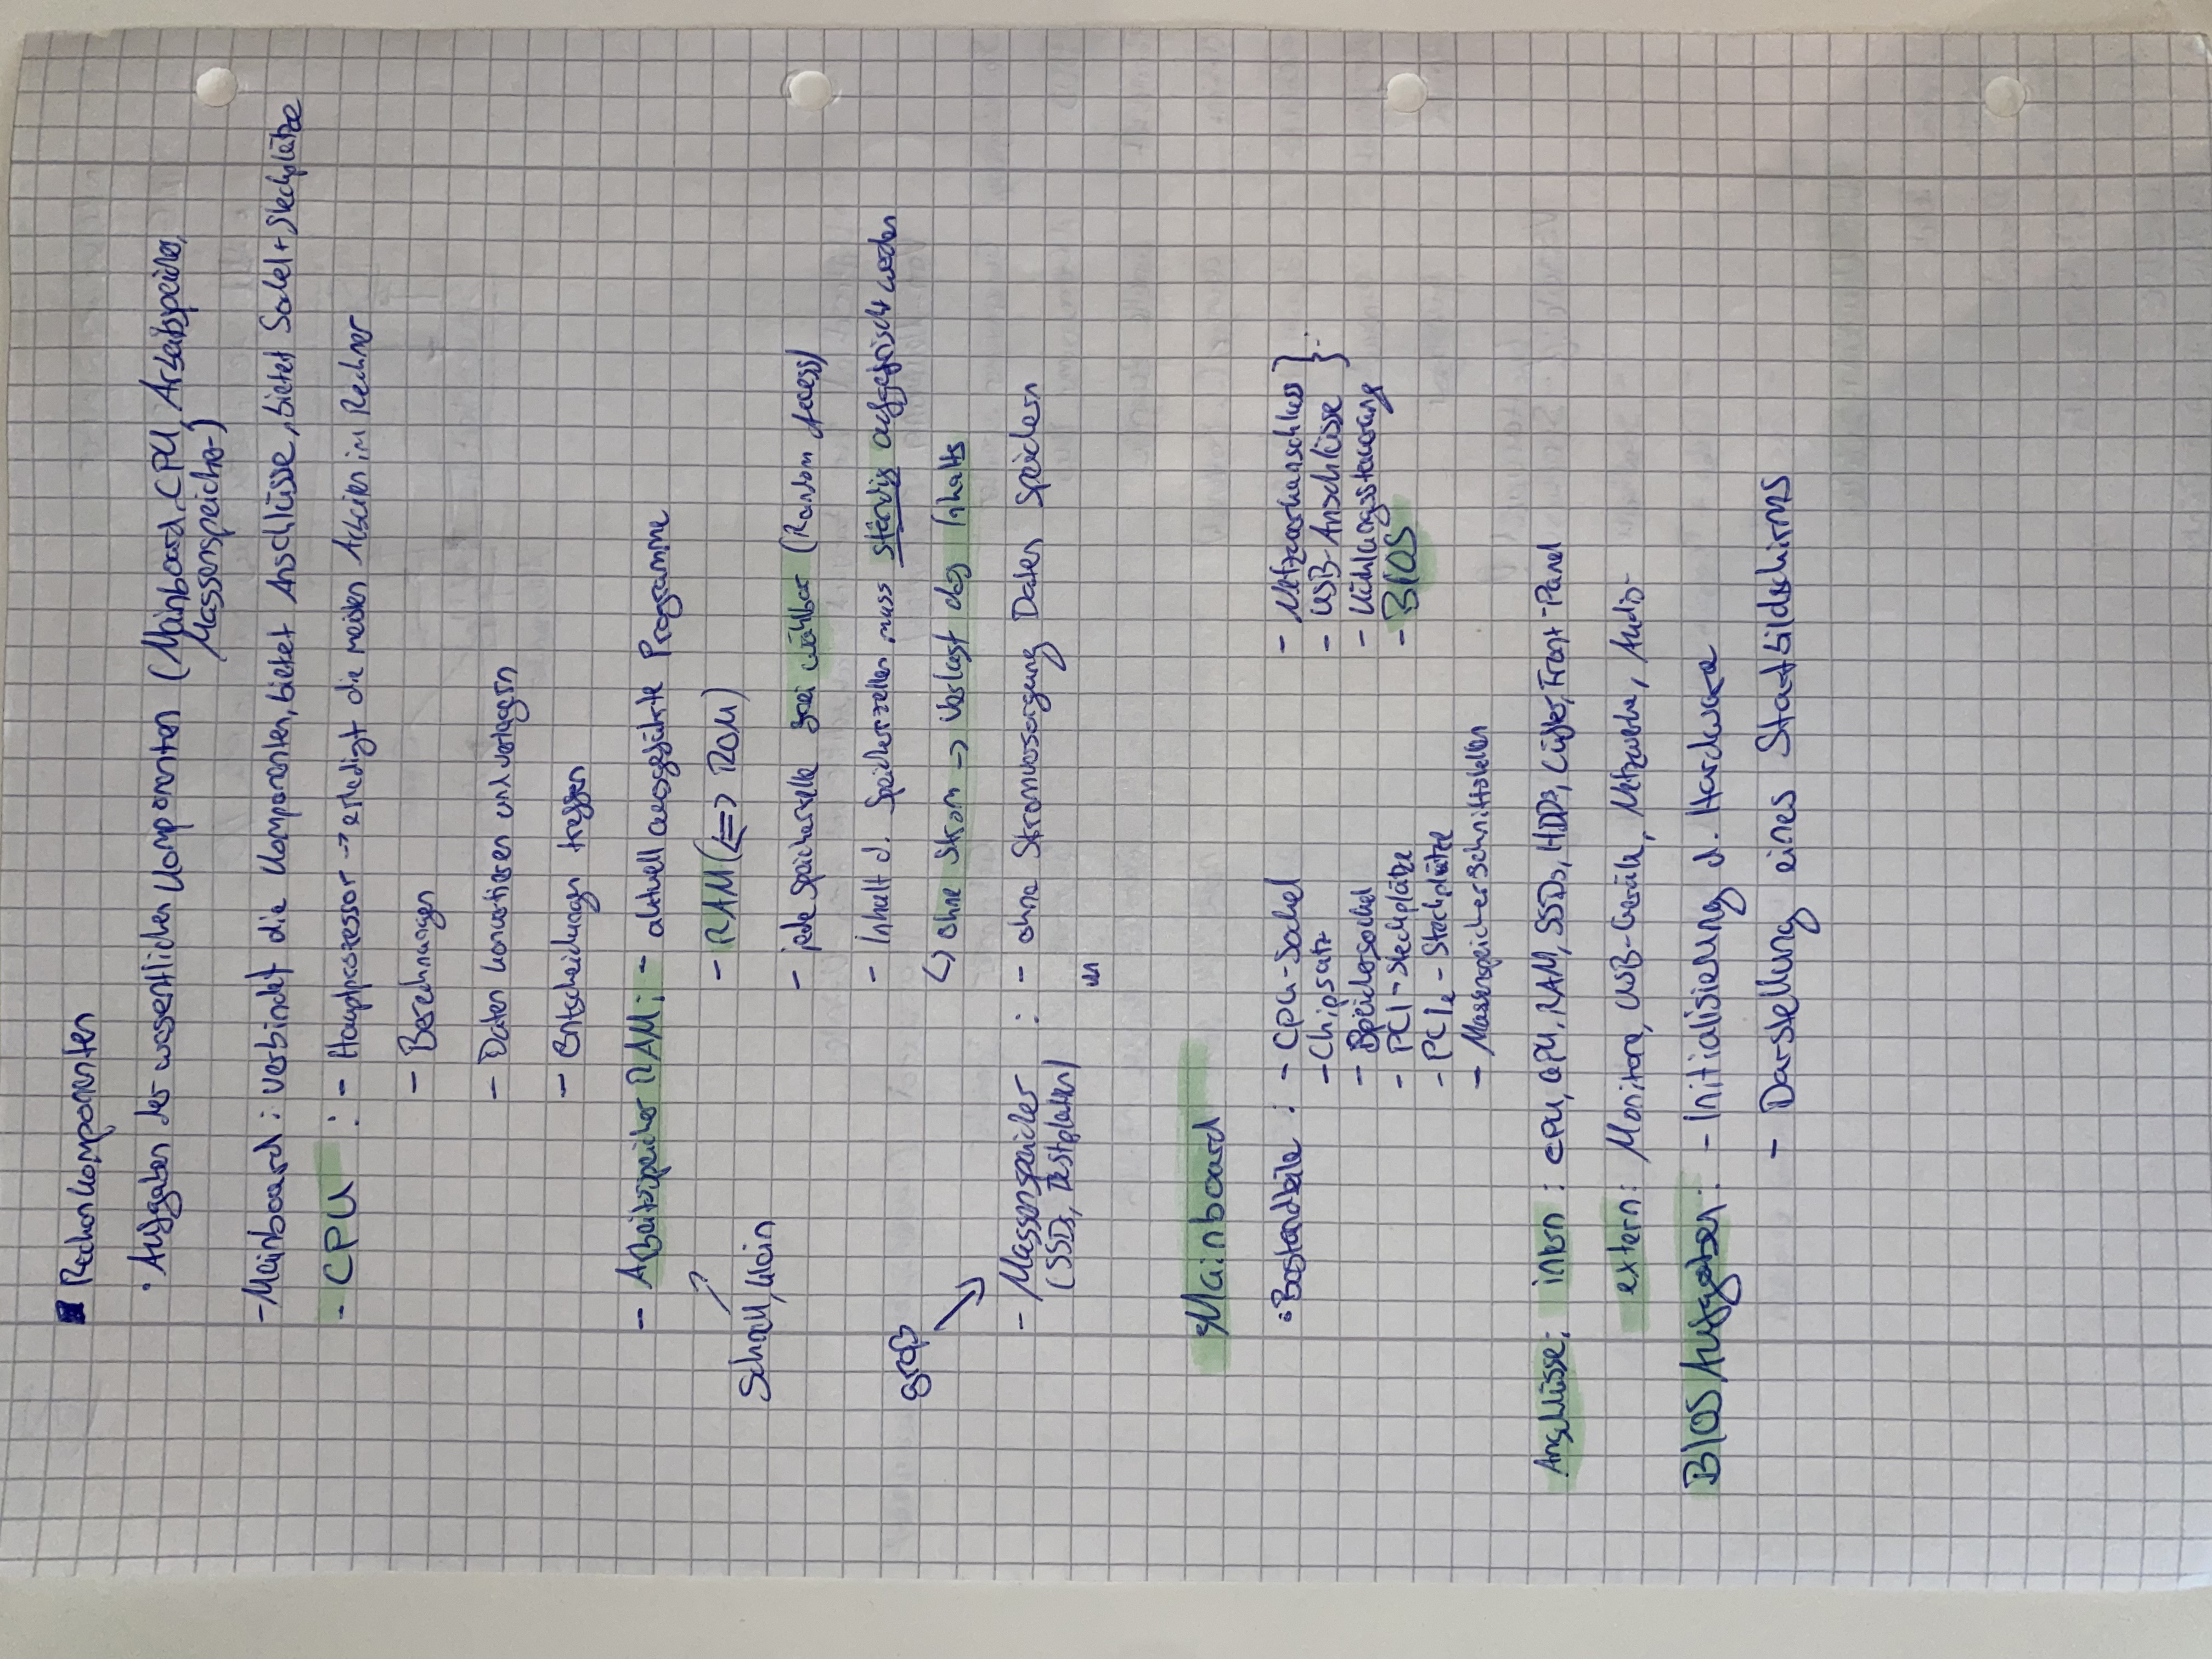 Rechnerkomponenten
· Aufgaben der wesentlichen Komponenten (Mainboard, CPU, Arbeitsspeicher,
Massenspeicher)
- Mainboard : verbindet die Komponenten, bietet Anschlüsse, bietet Sockel + Steckplätze
- CPU : - Hauptprozessor → erledigt die meisten Arbeiten im Rechner
- Berechnungen
- Daten kontrollieren und verlagern
- Entscheidungen treffen
- Arbeitsspeicher RAM : - aktuell ausgeführte Programme
schnell, klein
- RAM (<=> ROM)
- jede Speicherzelle frei wählbar (Random Access)
- Inhalt d. Speicherzellen muss ständig aufgefrischt werden
↳ ohne Strom => Verlust des Inhalts
groß
- Massenspeicher : - ohne Stromversorgung Daten speichern
(SSDs, Festplatten)
Mainboard
· Bestandteile : - CPU-Sockel
- Chipsatz
- Speichersockel
- PCI-Steckplätze
- PCIe-Steckplätze
- Massenspeicherschnittstellen
- Netzwerkanschluss }
- USB-Anschlüsse }
- Kühlungssteuerung
- BIOS
Anschlüsse: intern : CPU, GPU, RAM, SSDs, HDDs, Lüfter, Front-Panel
extern : Monitore, USB-Geräte, Netzwerke, Audio
BIOS Aufgaben : - Initialisierung d. Hardware
- Darstellung eines Startbildschirms